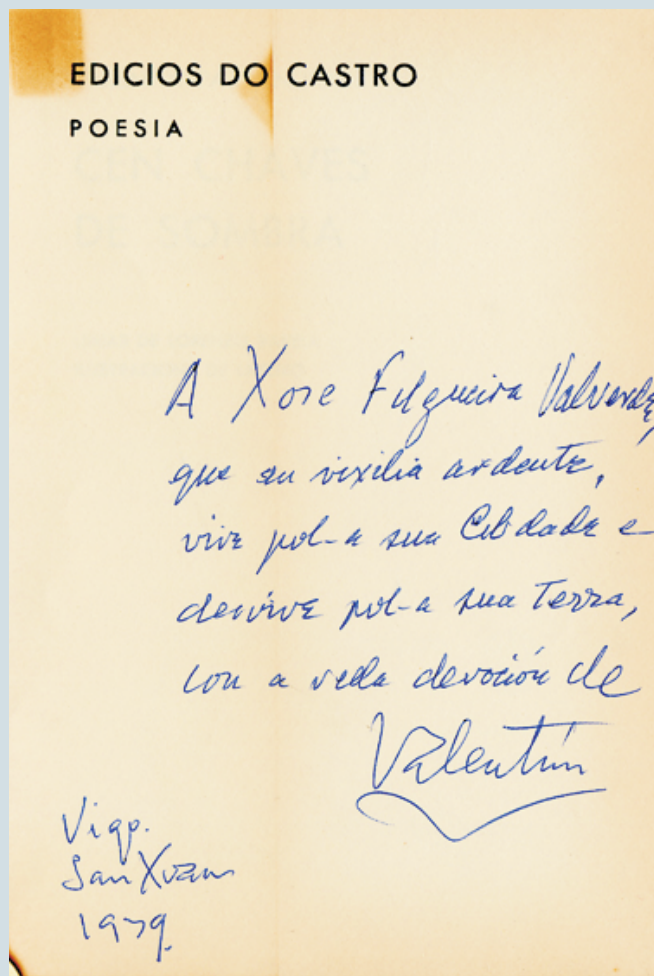 EDICIOS DO CASTRO
POESIA
A Xose Filgueira Valverde,
que en vixilia ardente,
vive pol-a sua Cibdade e
devive pol-a sua Terra,
con a vella devoción de
Valentín
Vigo.
San Xuan
1979.